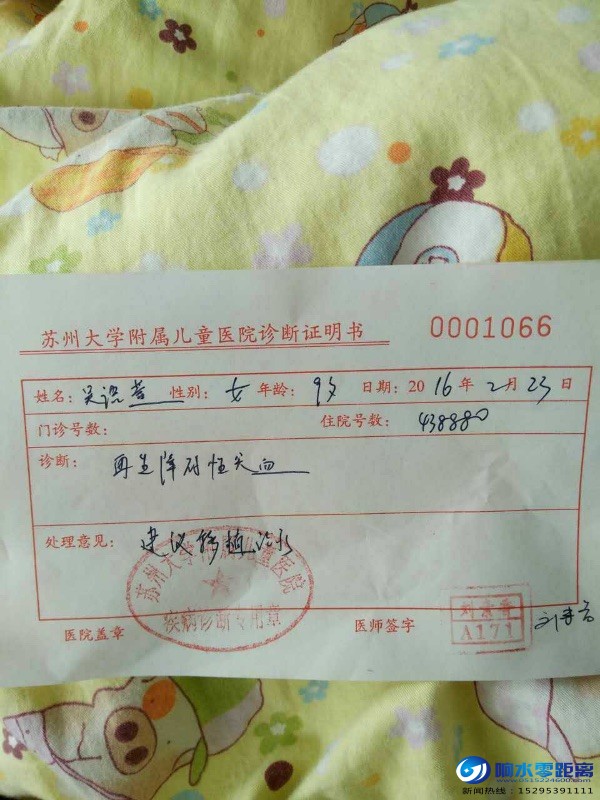 苏州大学附属儿童医院诊断证明书 0001066
姓名: 性别: 女 年龄: 9岁 日期: 2016年2月23日
门诊号数: 住院号数: 438880
诊断: 再生障碍性贫血
处理意见: 建议移植治疗
苏州大学附属儿童医院
疾病诊断专用章
医院盖章 医师签字
A171
响水零距离
www.0515224600.com
新闻热线：15295391111